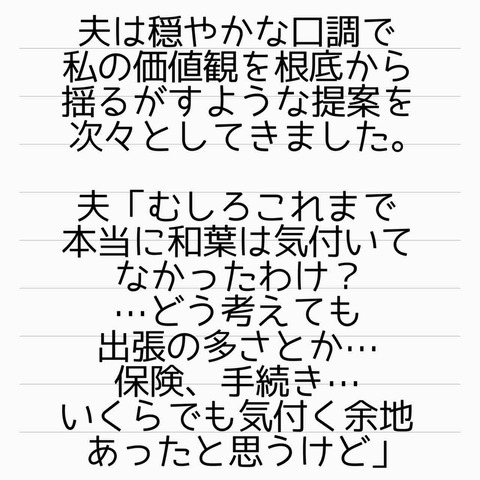 夫は穏やかな口調で
私の価値観を根底から
揺るがすような提案を
次々としてきました。
夫「むしろこれまで
本当に和葉は気付いて
なかったわけ？
…どう考えても
出張の多さとか…
保険、手続き…
いくらでも気付く余地
あったと思うけど」